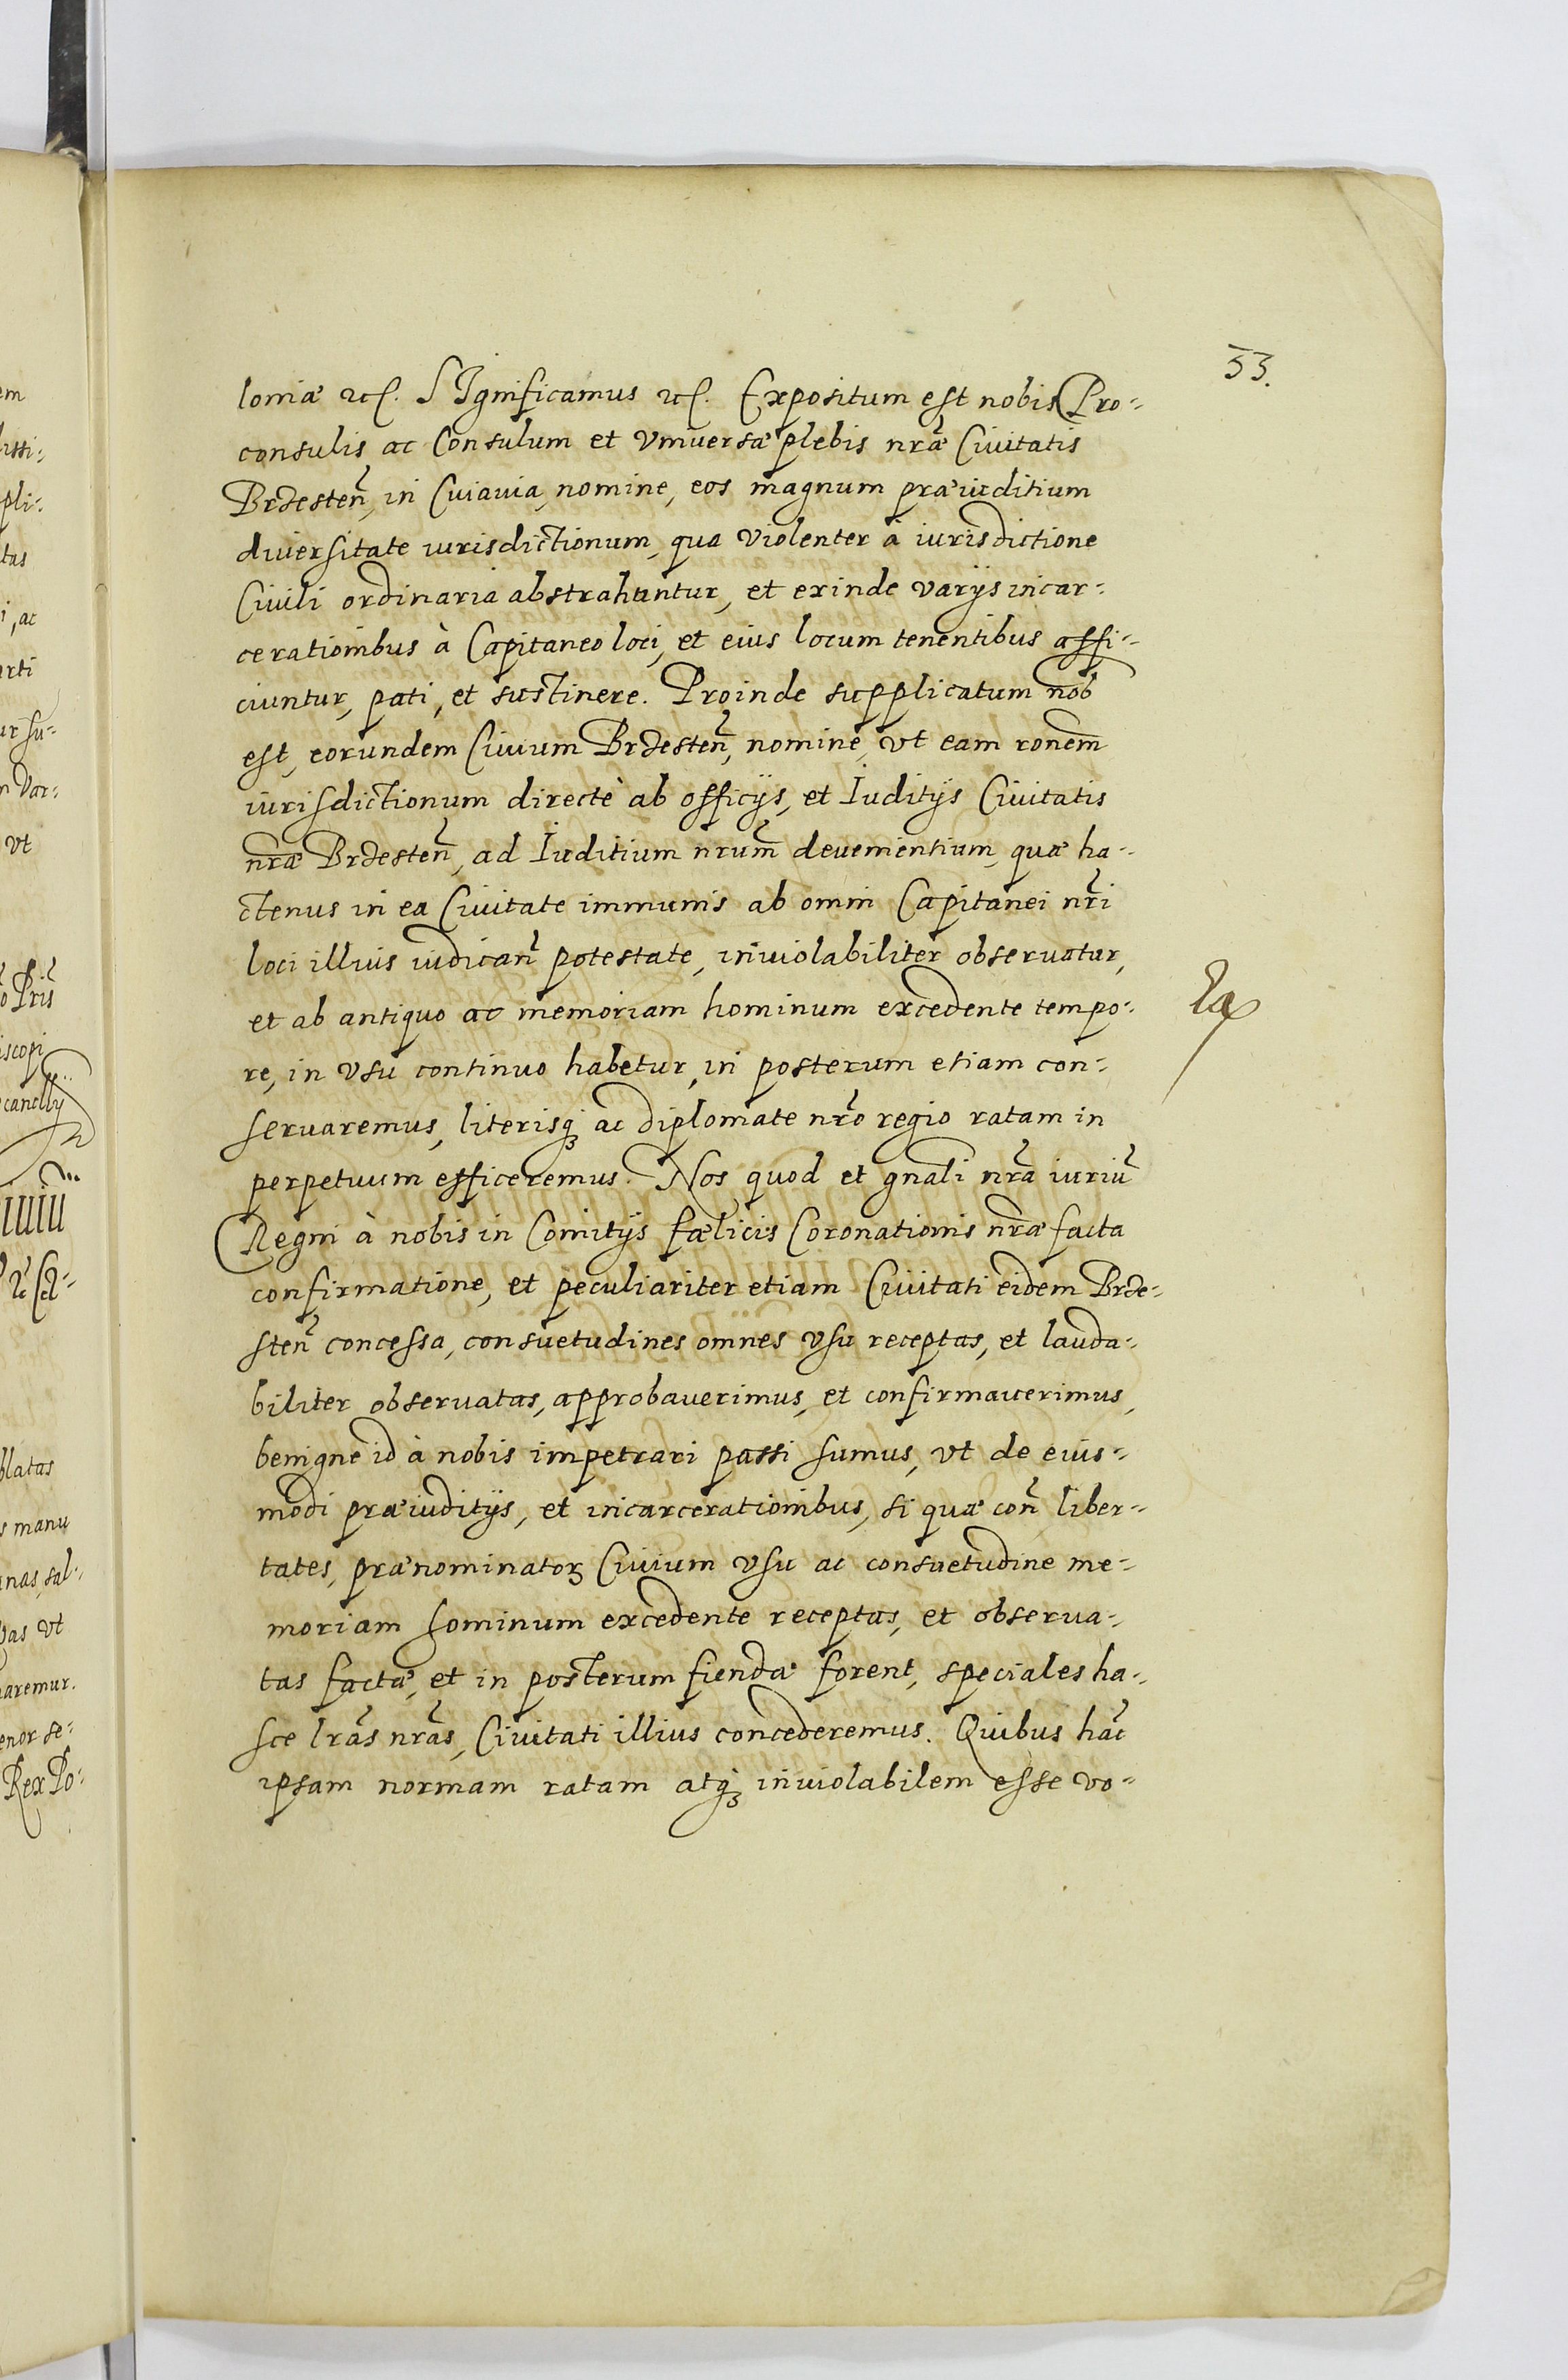 53.
loniæ etc. SIgnificamus etc. Expositum est nobis Pro-
consulis ac Consulum et Vniuersæ plebis nr̃æ Ciuitatis
Brzesteñ, in Cuiauia, nomine, eos magnum præiuditium
diuersitate iurisdictionum, qua violenter à iurisdictione
Ciuili ordinaria abstrahuntur, et exinde varijs incar-
cerationibus à Capitaneo loci, et eius locum tenentibus affi-
ciuntur, pati, et sustinere. Proinde supplicatum nob
est, eorundem Ciuium Brzesteñ, nomine, vt eam ronem̃
iurisdictionum directè ab officijs, et Iuditijs Ciuitatis
nr̃æ Brzesteñ, ad Iuditium nrum̃ deuenientium, quæ ha-
ctenus in ea Ciuitate immunis ab omni Capitanei nr̃i
loci illius iudicañ potestate, inuiolabiliter obseruatur,
et ab antiquo ac memoriam hominum excedente tempo-
re, in vsu continuo habetur, in posterum etiam con-
seruaremus, literisq; ac diplomate nr̃o regio ratam in
perpetuum efficeremus. Nos quod et gnali nr̃a iuriũ
Regni à nobis in Comitijs fœlicis Coronationis nr̃æ facta
confirmatione, et peculiariter etiam Ciuitati eidem Brze-
steñ concessa, consuetudines omnes vsu receptas, et lauda-
biliter obseruatas, approbauerimus, et confirmauerimus,
benigne id à nobis impetrari passi sumus, vt de eius-
modi præiuditijs, et incarcerationibus, si quæ coñ liber-
tates, prænominatoꝝ Ciuium vsu ac consuetudine me-
moriam hominum excedente receptas, et obserua-
tas factæ, et in posterum fiendæ forent, speciales ha-
sce lr̃as nr̃as, Ciuitati illius concederemus. Quibus hãc
ipsam normam ratam atq; inuiolabilem esse vo-